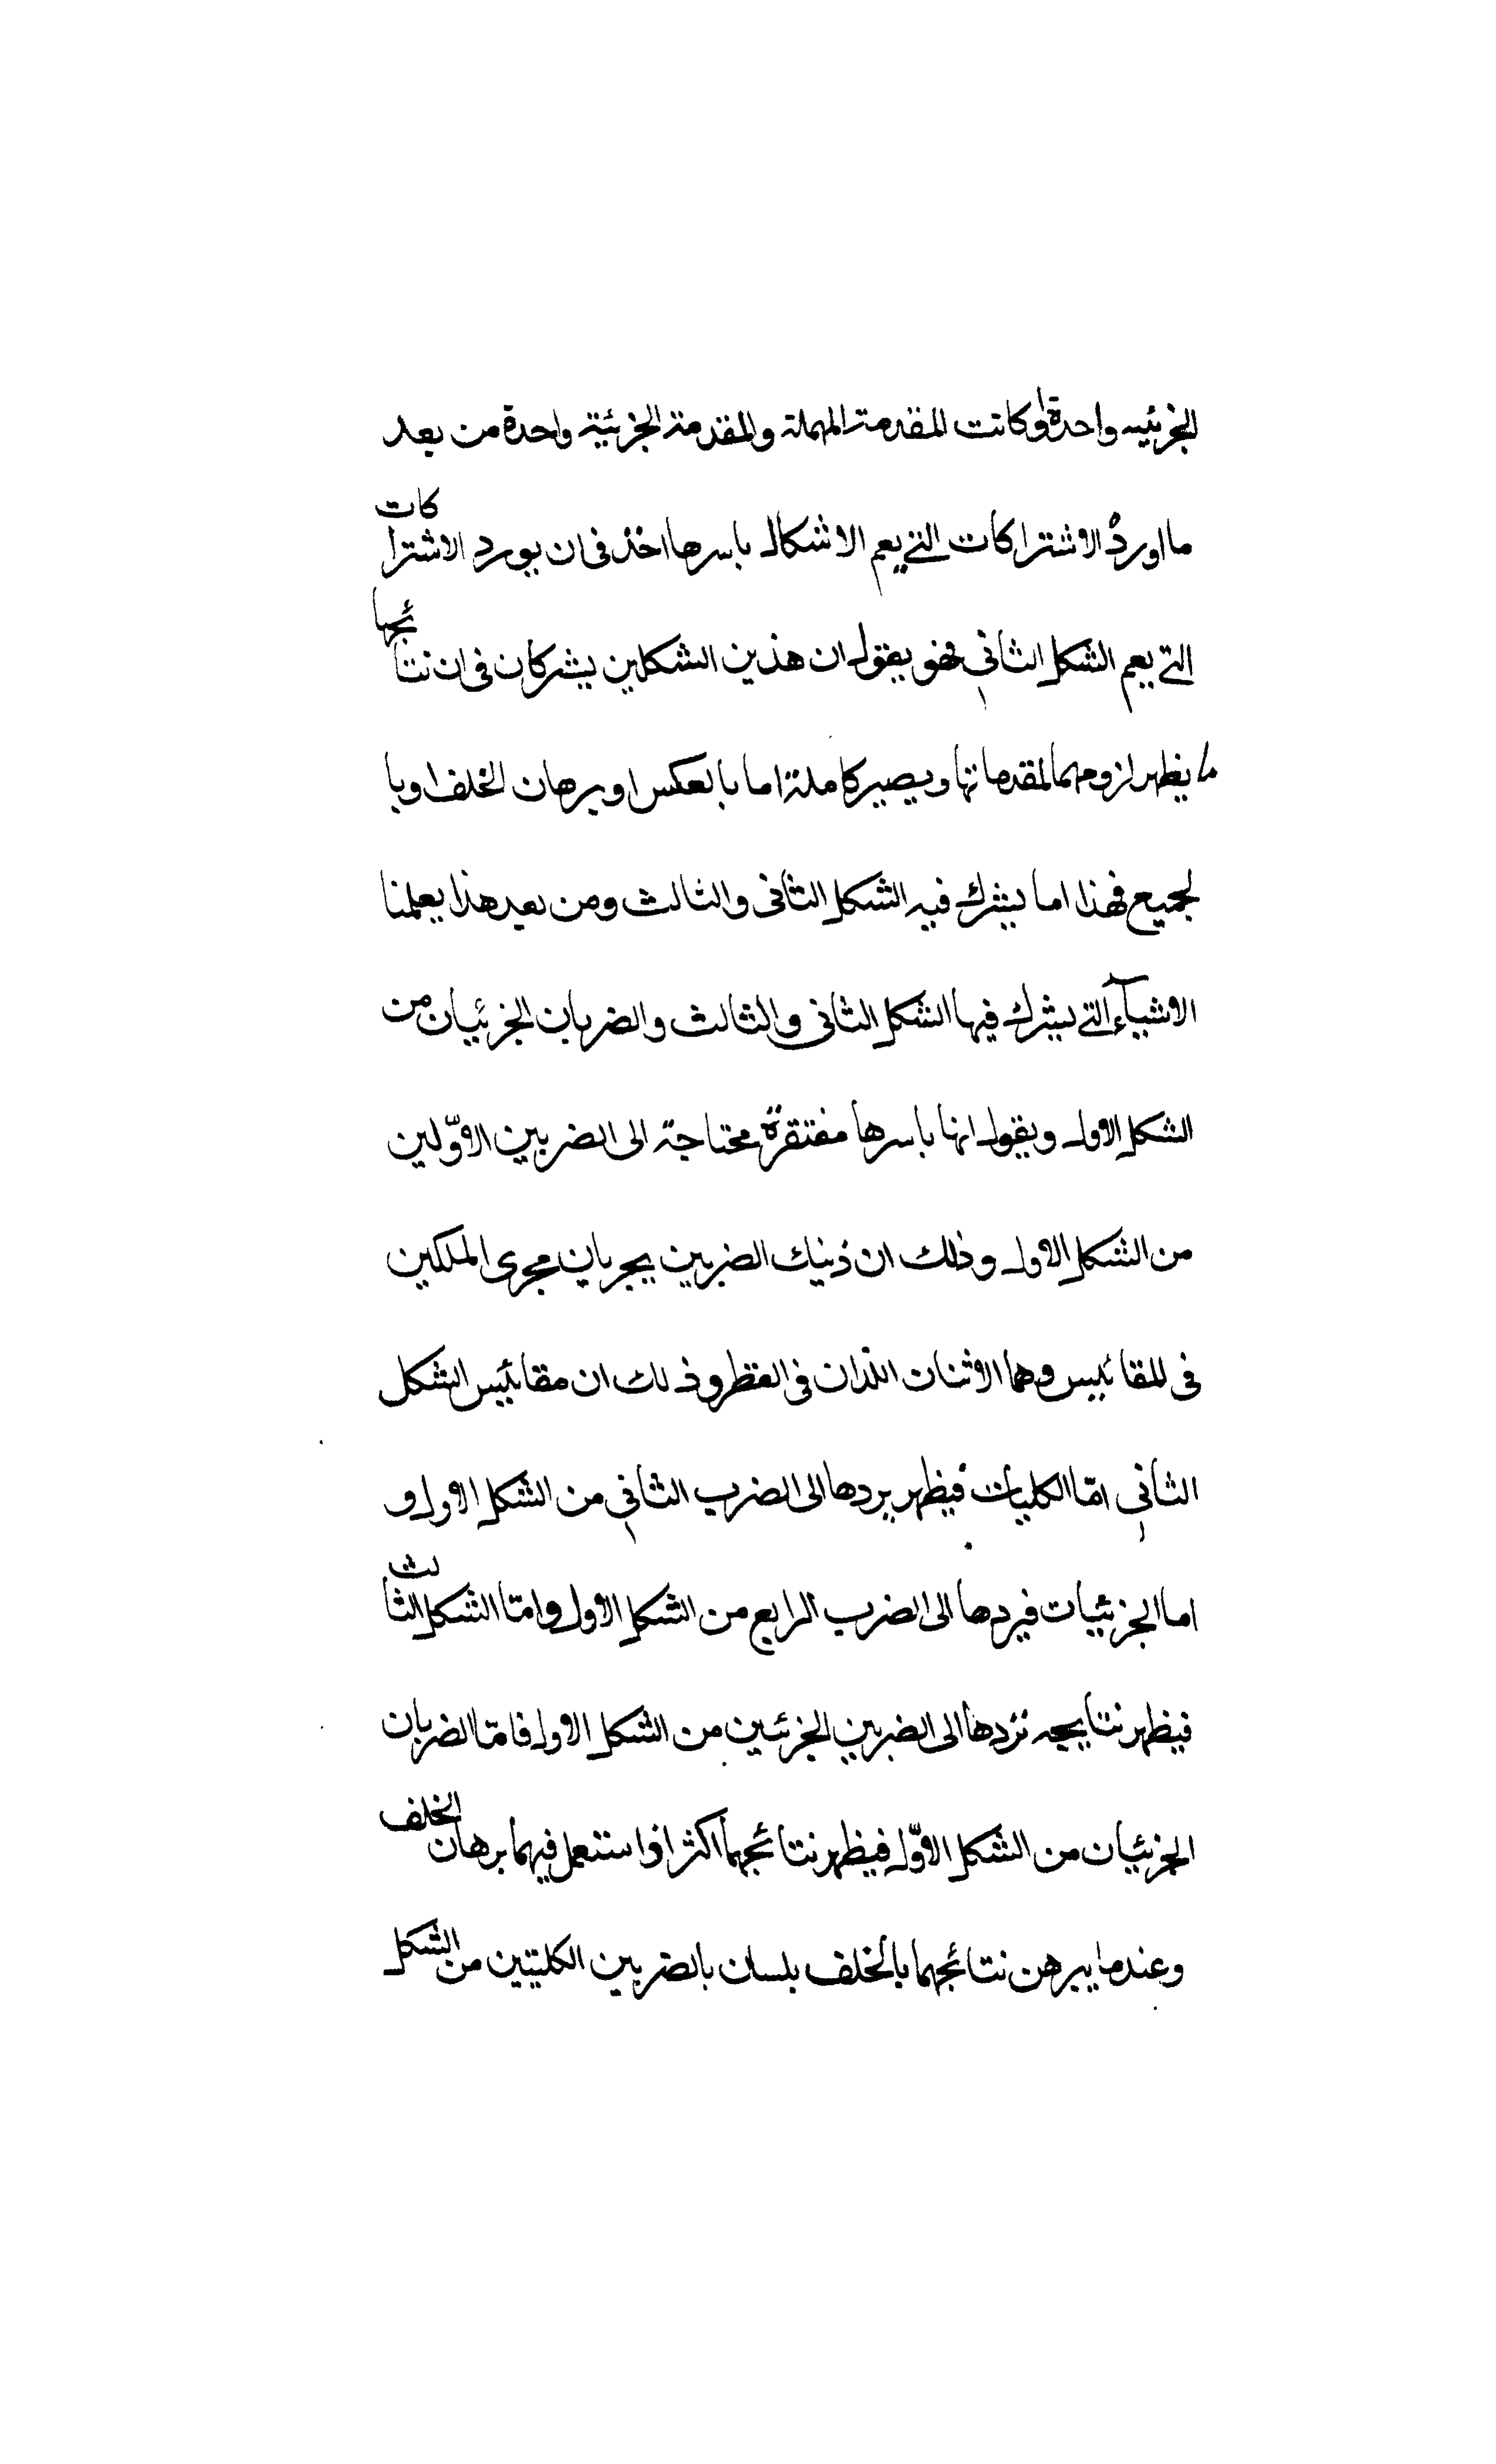 الجزئيه واحدة او كانت المقدمة المهملة والمقدمة الجزئية واحدة من بعد
ما اورد الاشتراكات التي يعم الاشكال باسرها اخذ في ان يورد الاشتراكات
التي يعم الشكل الثاني فهو يقول ان هذين الشكلين يشركان في ان نتائجها
ما يظهر لزومهما لمقدماتها ويصير كاملة اما بالعكس او ببرهان الخلف او با
لجميع فهذا اما يشرك فيه الشكل الثاني والثالث ومن بعد هذا يعلمنا
الاشياء التي يشرك فيها الشكل الثاني والثالث والضربان الجزئيان من
الشكل الاول ويقول انها باسرها مفتقرة محتاجة الى الضربين الاوّلين
من الشكل الاول وذلك ان ذينك الضربين يجريان مجرى الملكين
في المقائيس وهما الاثنان اللذان في وذلك ان مقائيس الشكل
الثاني امّا الكليات فيظهر بردها الى الضرب الثاني من الشكل الاول و
اما الجزئيات فيردها الى الضرب الرابع من الشكل الاول وامّا الشكل الثالث
فيظهر نتايجه نردها الى الضربين الجزئين من الشكل الاول فامّا الضربان
الجزئيان من الشكل الاوّل فيظهر نتائجهما اكثر اذا استعمل فيهما برهان الخلف
وعندما يبرهن نتائجهما بالخلف بلسان بالضربين الكليتين من الشكل